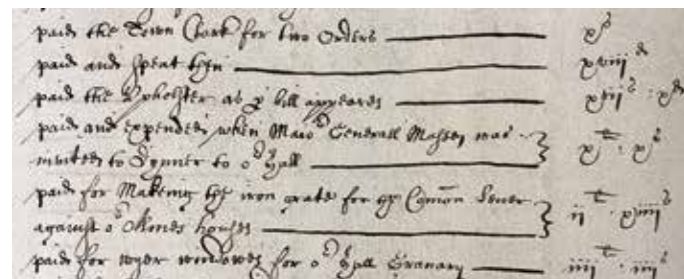 paid the Town Clark for two Orders xs
paid and spent then xviijd
paid the Upholster as p bill appeares xvijs xd
paid and expended when Maior Generall Massey was
invited to Dynner to or hall xli xs
paid for Makeing the iron grate for ye Comon Sewer
against or Almes houses ijli xiiijs
paid for wyer windowes for or hall Granary iiijli iiijs